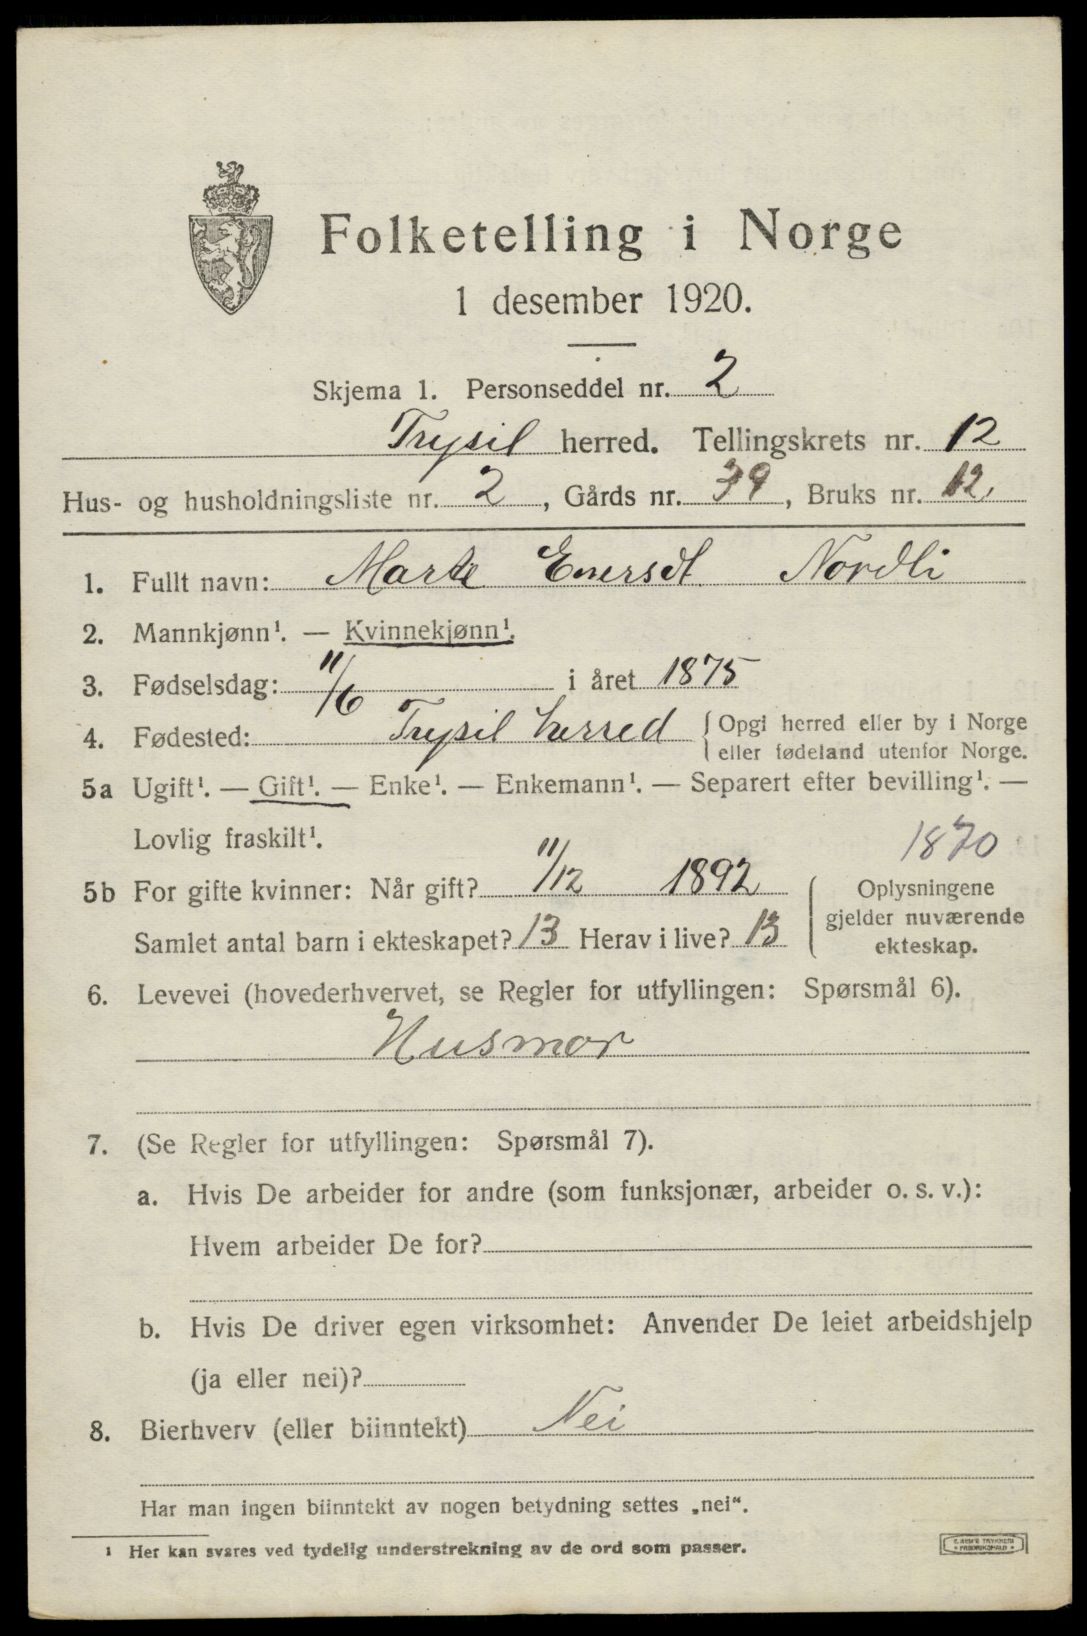 Folketelling i Norge
1 desember 1920.
Skjema 1. Personseddel nr. 2
Trysil herred. Tellingskrets nr. 12
Hus- og husholdningsliste nr. 2, Gårds nr. 39, Bruks nr. 12.
1. Fullt navn: Marte Enersdt Nordli
2. Mannkjønn¹. — Kvinnekjønn¹.
3. Fødselsdag: 11/6 i året 1875
4. Fødested: Trysil herred { Opgi herred eller by i Norge
eller fødeland utenfor Norge.
5a Ugift¹. — Gift¹. — Enke¹. — Enkemann¹. — Separert efter bevilling¹. —
Lovlig fraskilt¹. 1870
5b For gifte kvinner: Når gift? 11/12 1892 { Oplysningene
gjelder nuværende
Samlet antal barn i ekteskapet? 13 Herav i live? 13 ekteskap.
6. Levevei (hovederhvervet, se Regler for utfyllingen: Spørsmål 6).
Husmor
7. (Se Regler for utfyllingen: Spørsmål 7).
a. Hvis De arbeider for andre (som funksjonær, arbeider o. s. v.):
Hvem arbeider De for?
b. Hvis De driver egen virksomhet: Anvender De leiet arbeidshjelp
(ja eller nei)?
8. Bierhverv (eller biinntekt) Nei
Har man ingen biinntekt av nogen betydning settes „nei“.
¹ Her kan svares ved tydelig understrekning av de ord som passer.